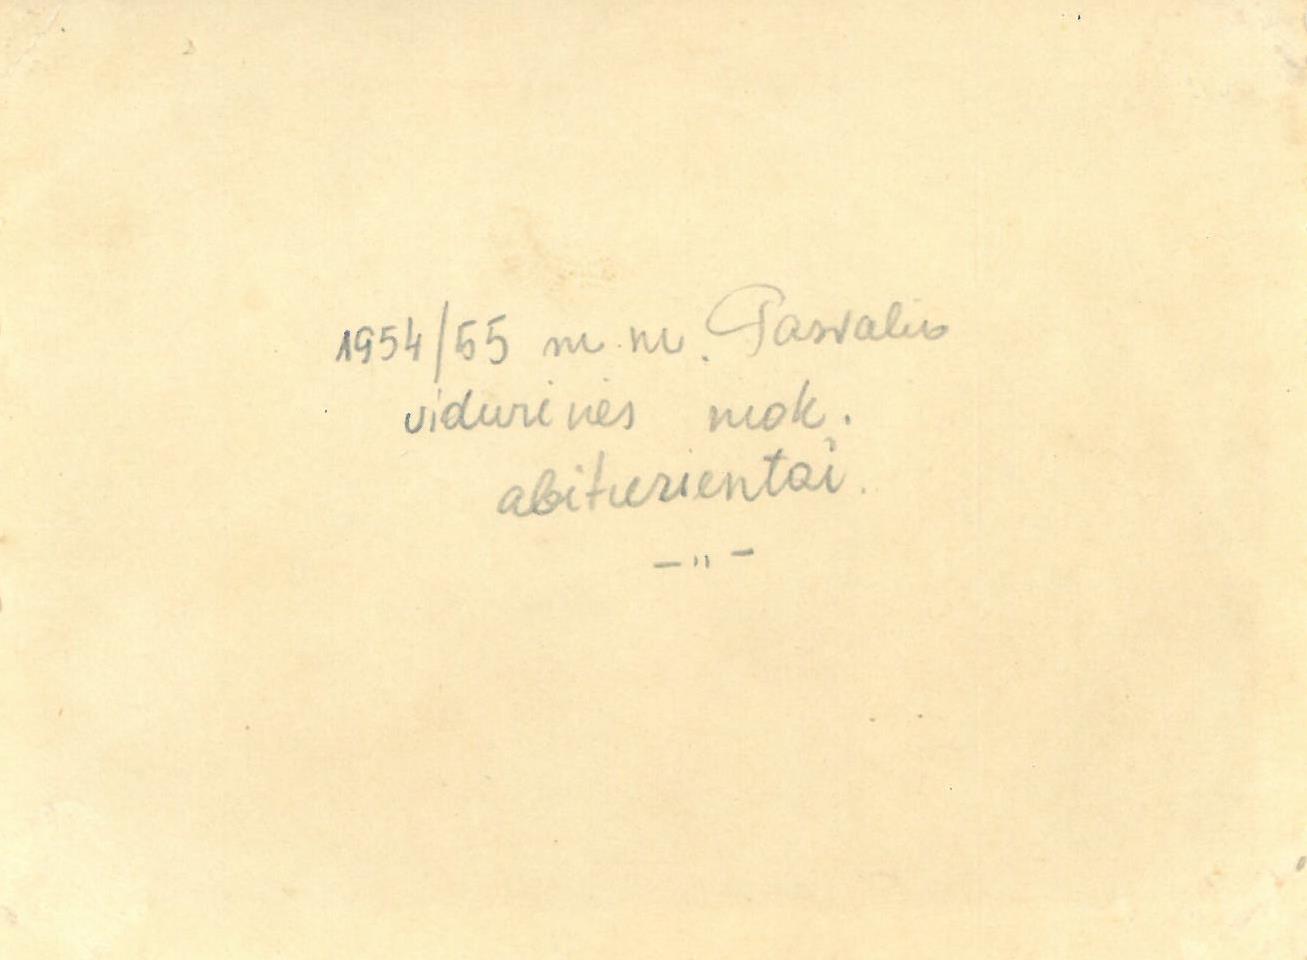 1954/55 m.m. Pasvalio
vidurinės mok.
abiturientai.
—"—